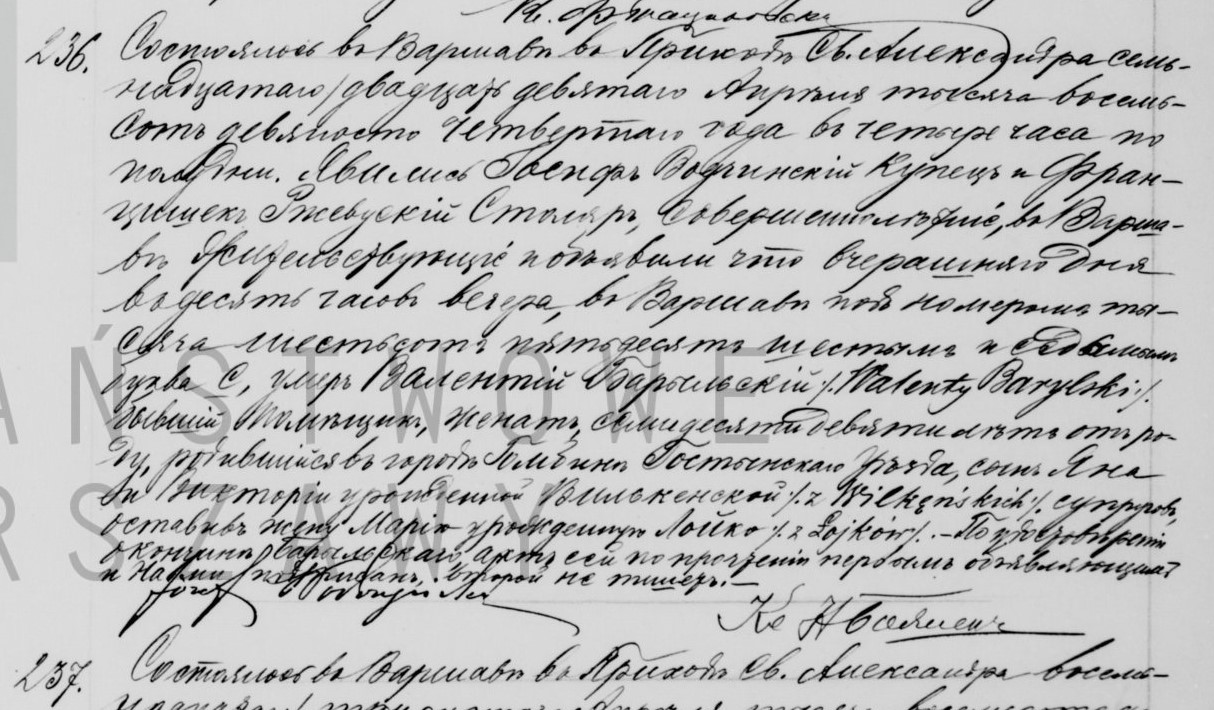 236. Состоялось въ Варшавѣ въ Приходѣ Св. Александра семь-
надцатаго/двадцать девятаго Апрѣля тысяча восемь-
сотъ девяносто четвертаго года въ четыре часа по
полудни. Явились Іосифъ Купецъ и Фран-
цишекъ Ржевускій Столяръ, совершеннолѣтніе, въ Варша-
вѣ жительствующіе и объявили что вчерашняго дня
въ десять часовъ вечера, въ Варшавѣ подъ номеромъ ты-
сяча шестьсотъ пятьдесятъ шестымъ и седьмымъ
буква С, умеръ Валентій Барыльскій /. Walenty Barylski ./.
бывшій Помѣщикъ, женатъ, семидесяти девяти лѣтъ отъ ро-
ду, родившійся въ городѣ Гомбинѣ Гостынскаго Уѣзда, сынъ Яна
и Викторіи урожденной Вилькенской /. z Wilkęńskich /. супруговъ,
оставивъ жену Марію урожденную Лойко /. z Łojków /. - По удостовѣреніи
о кончинѣ Барыльскаго, актъ сей по прочтеніи первымъ объявляющимъ
и Нами подписанъ, второй не пишетъ. -
Józef
Кс
237. Состоялось въ Варшавѣ въ Приходѣ Св. Александра восем-